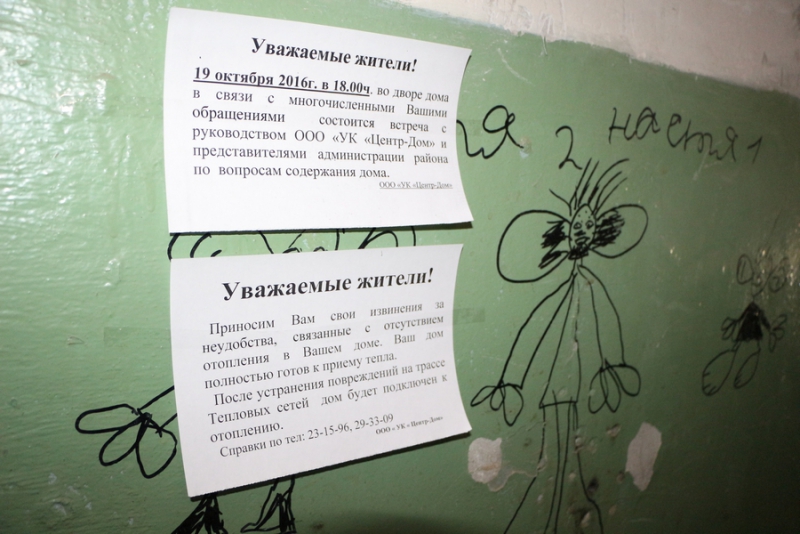 Уважаемые жители!
19 октября 2016г. в 18.00ч. во дворе дома
в связи с многочисленными Вашими
обращениями состоится встреча с
руководством ООО «УК «Центр-Дом» и
представителями администрации района
по вопросам содержания дома.
ООО «УК «Центр-Дом»
я 2 настя 1
Уважаемые жители!
Приносим Вам свои извинения за
неудобства, связанные с отсутствием
отопления в Вашем доме. Ваш дом
полностью готов к приему тепла.
После устранения повреждений на трассе
Тепловых сетей дом будет подключен к
отоплению.
Справки по тел: 23-15-96, 29-33-09
ООО «УК «Центр-Дом»